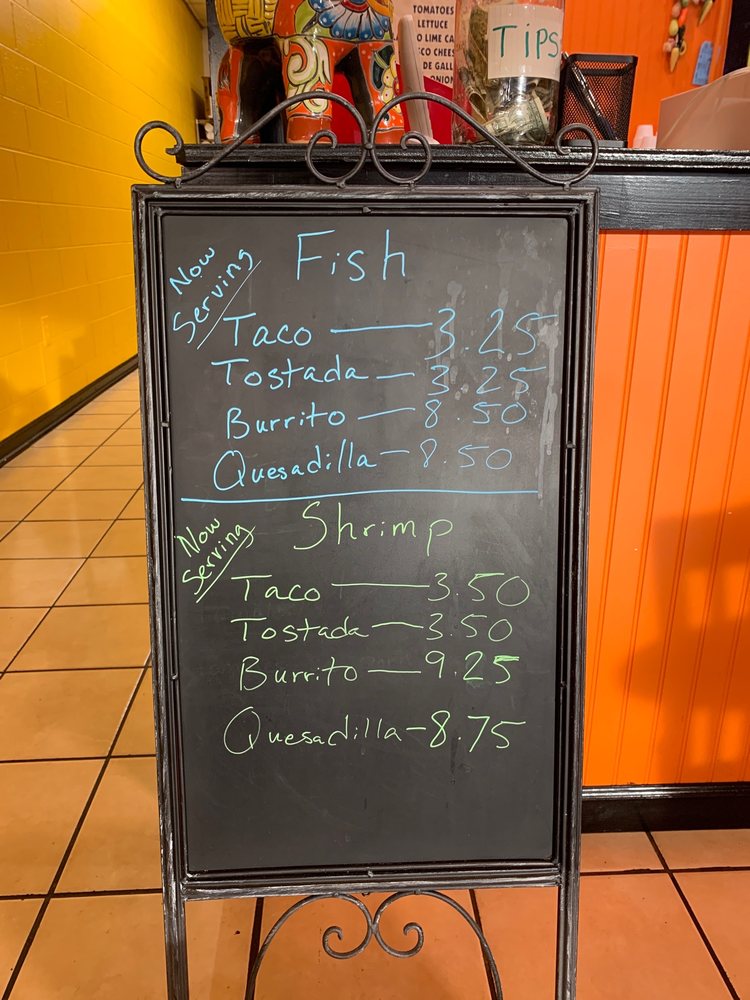 TOMATOES
LETTUCE
DE GALL
TIPS
Now
Serving
Fish
Taco — 3.25
Tostada — 3.25
Burrito — 8.50
Quesadilla — 8.50
Now
Serving
Shrimp
Taco — 3.50
Tostada — 3.50
Burrito — 9.25
Quesadilla — 8.75